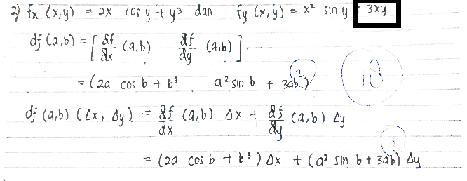 2) fx (x,y) = 2x cos y + y³ dan fy (x,y) = x² sin y 3xy
df (a,b) = [ df/dx (a,b) df/dy (a,b) ]
= (2a cos b + b³ a² sin b + 3ab²)
df (a,b) (Δx, Δy) = df/dx (a,b) Δx + df/dy (a,b) Δy
= (2a cos b + b³) Δx + (a² sin b + 3ab²) Δy